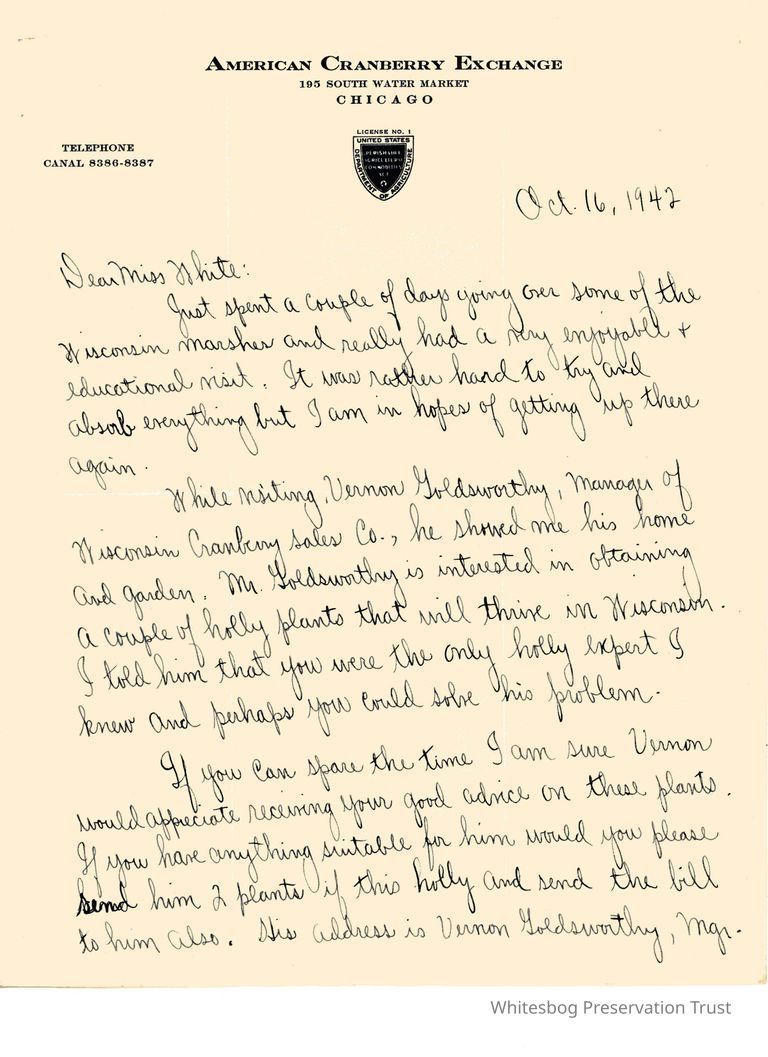 AMERICAN CRANBERRY EXCHANGE
195 SOUTH WATER MARKET
CHICAGO
TELEPHONE
CANAL 8386-8387
LICENSE NO. 1
UNITED STATES
PERISHABLE
AGRICULTURAL
COMMODITIES
ACT
DEPARTMENT OF AGRICULTURE
Oct. 16, 1942
Dear Miss White:
Just spent a couple of days going over some of the
Wisconsin marshes and really had a very enjoyable +
educational visit. It was rather hard to try and
absorb everything but I am in hopes of getting up there
again.
While visiting, Vernon Goldsworthy, Manager of
Wisconsin Cranberry Sales Co., he showed me his home
and garden. Mr. Goldsworthy is interested in obtaining
a couple of holly plants that will thrive in Wisconsin.
I told him that you were the only holly expert I
knew and perhaps you could solve his problem.
If you can spare the time I am sure Vernon
would appreciate receiving your good advice on these plants.
If you have anything suitable for him would you please
send him 2 plants if this holly and send the bill
to him also. His address is Vernon Goldsworthy, Mgr.
Whitesbog Preservation Trust